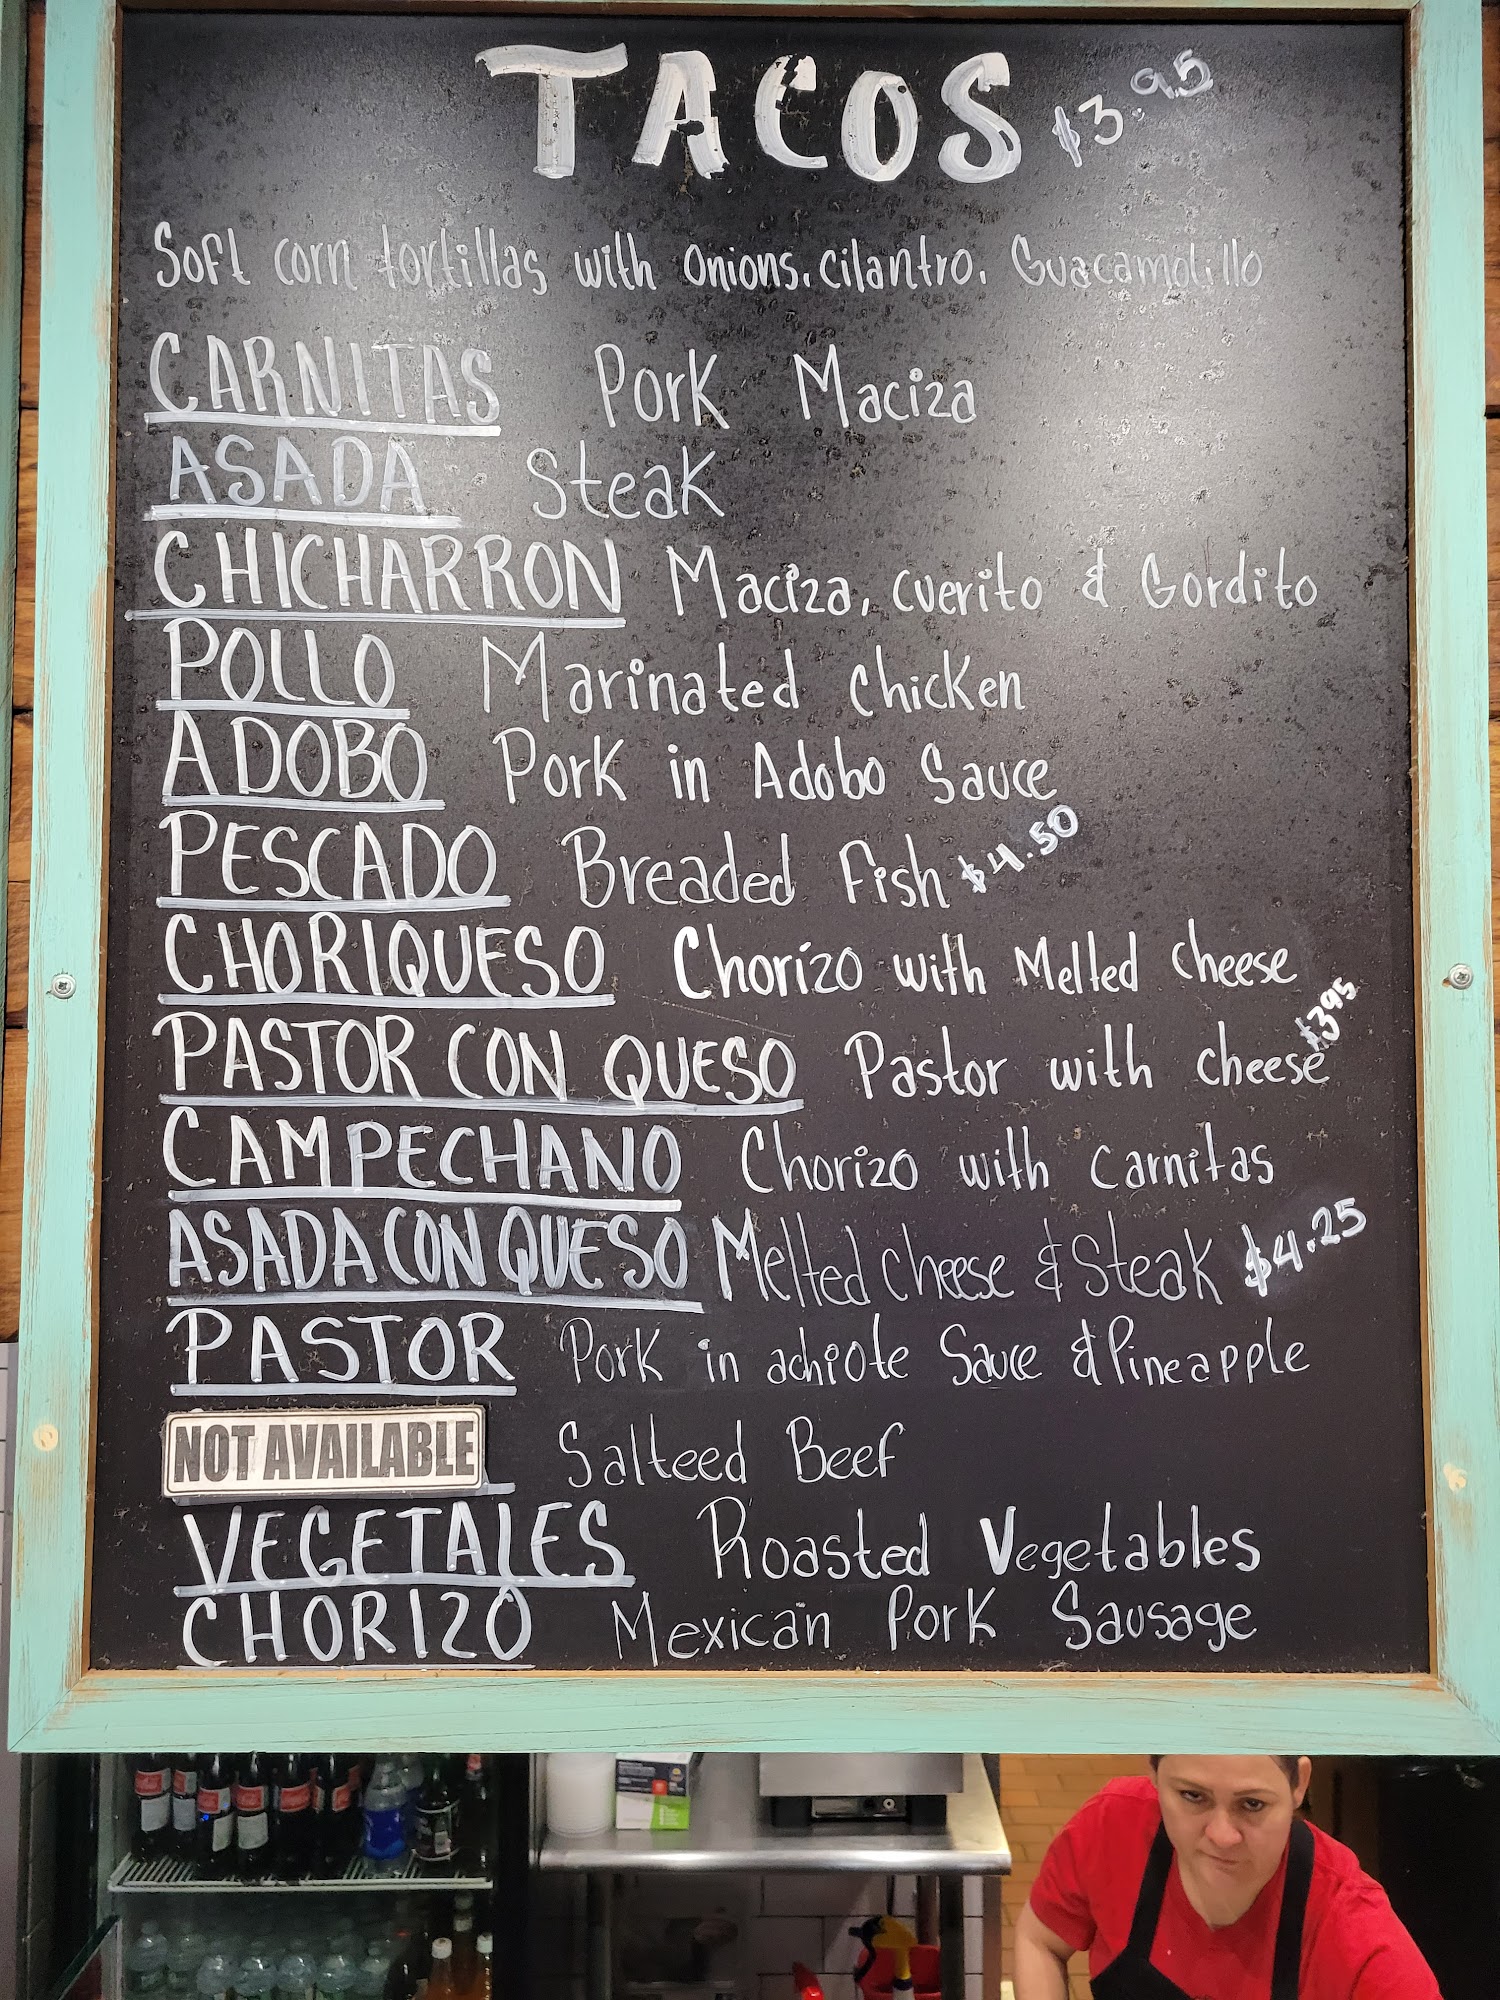 TACOS $3.95
Soft corn tortillas with onions, cilantro, Guacamolillo
CARNITAS Pork Maciza
ASADA Steak
CHICHARRON Maciza, cuerito & Gordito
POLLO Marinated chicken
ADOBO Pork in Adobo Sauce
PESCADO Breaded Fish $4.50
CHORIQUESO Chorizo with Melted cheese
PASTOR CON QUESO Pastor with cheese $3.95
CAMPECHANO Chorizo with carnitas
ASADA CON QUESO Melted cheese & Steak $4.25
PASTOR Pork in achiote Sauce & Pineapple
NOT AVAILABLE Salteed Beef
VEGETALES Roasted Vegetables
CHORIZO Mexican Pork Sausage